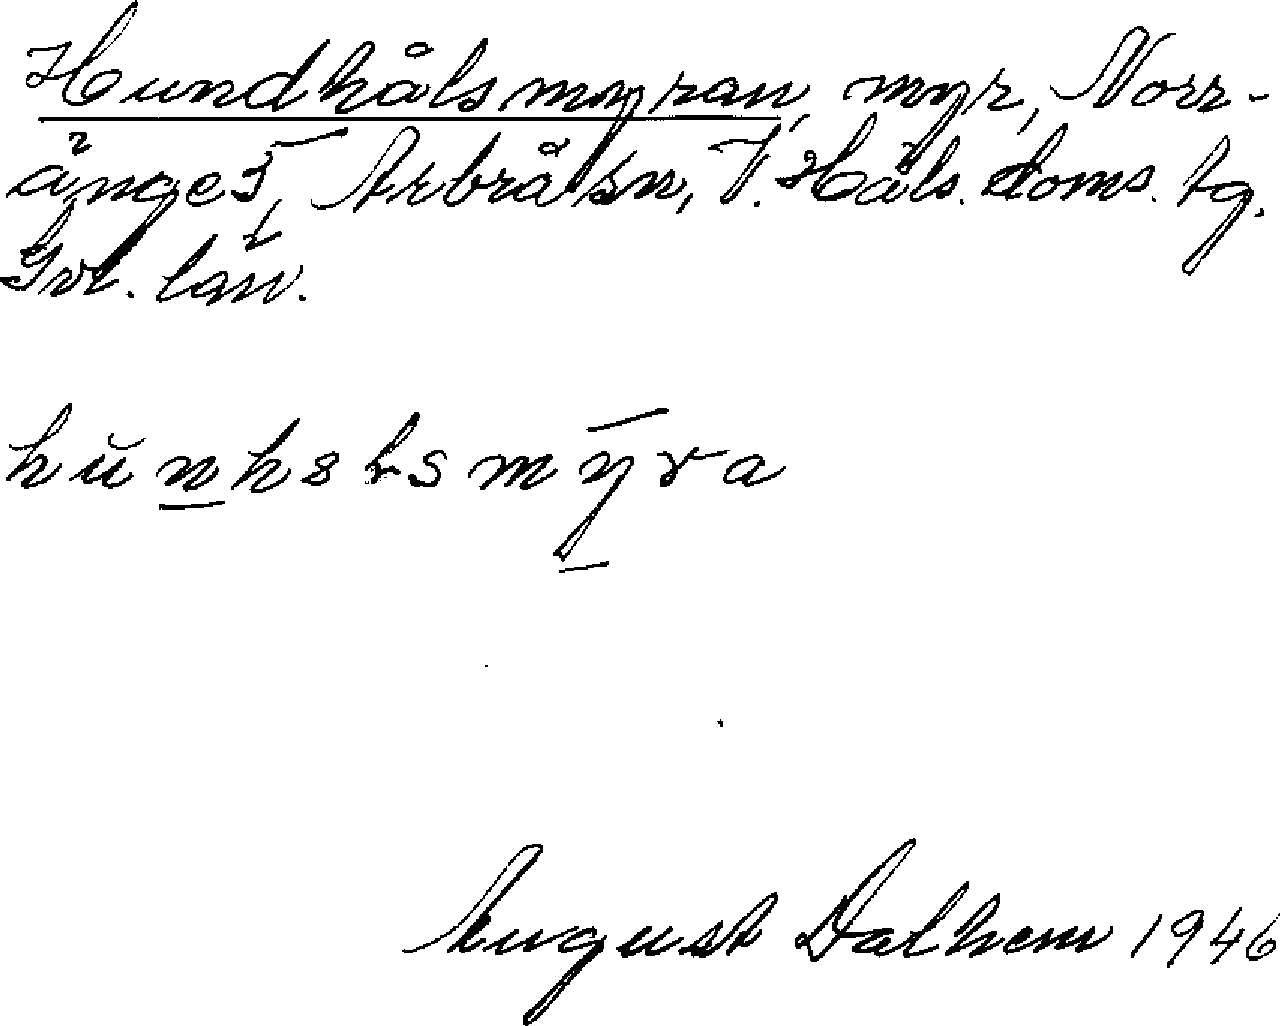 Hundhålsmyran, myr, Norr-
änge 5, Arbrå sn, V. Häls. doms. tg.
Gvl. län.
August Dalhem 1946